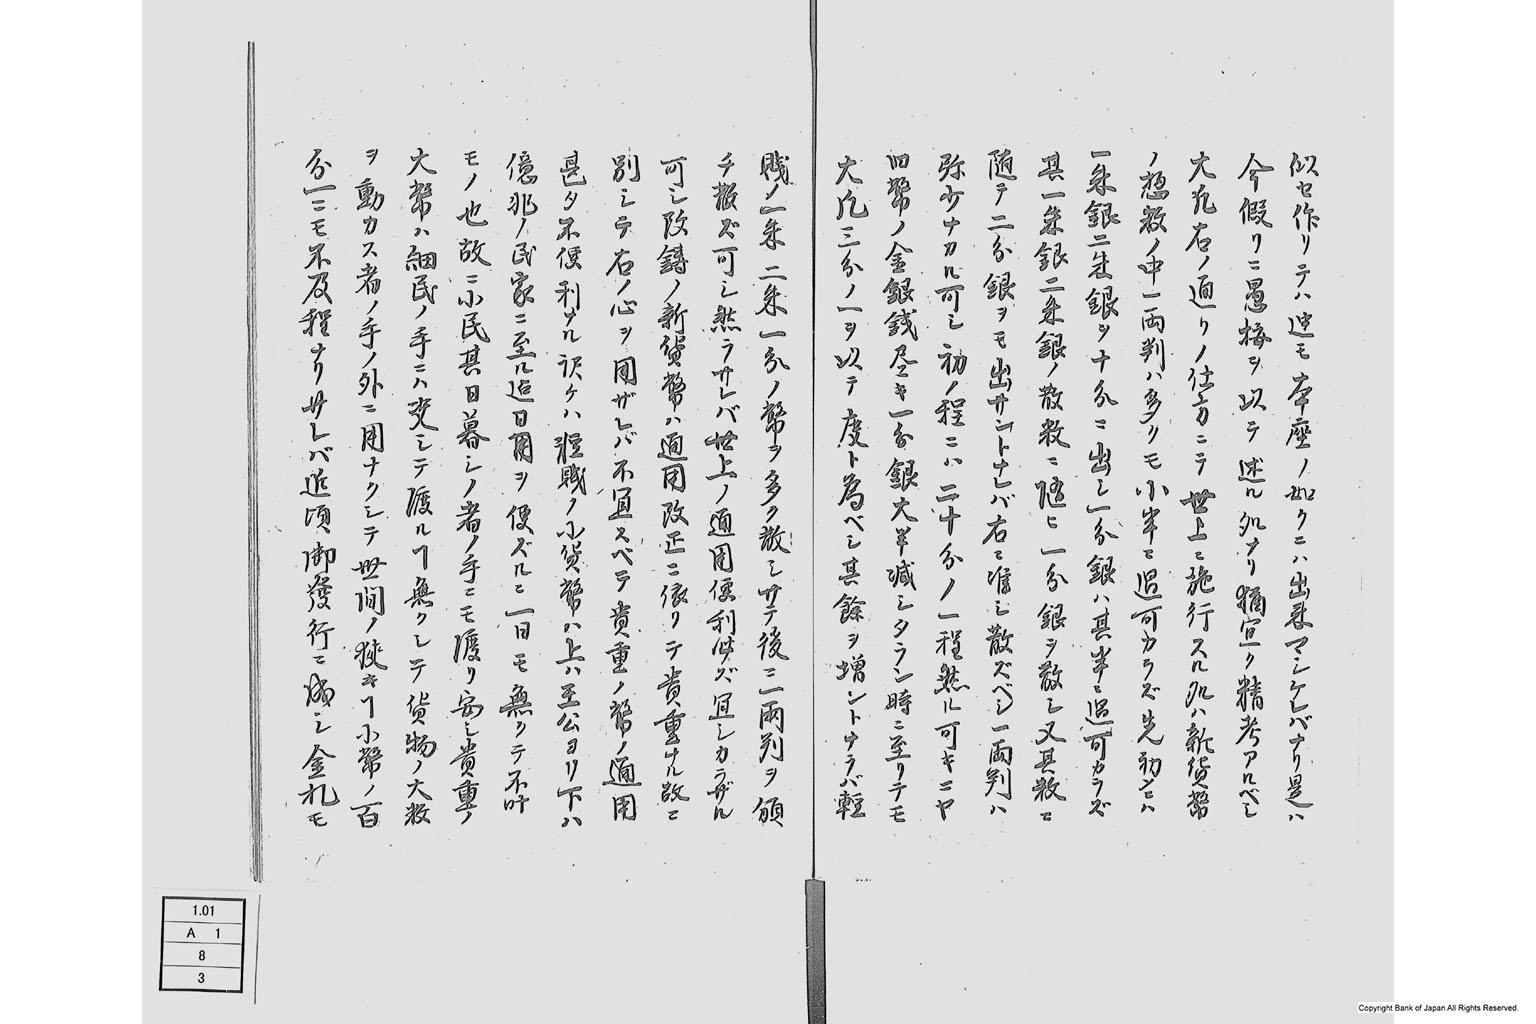 似セ作リテハ迚モ本座ノ如クニハ出来マシケレバナリ是ハ
今假リニ愚按ヲ以テ述ル処ナリ猶宜ク精考アルベシ
大凡右ノ通リノ仕方ニテ世上ニ施行スル処ハ新貨幣
ノ惣数ノ中一両判ハ多クモ小半ニ過可カラズ先初メニハ
一朱銀二朱銀ヲ十分ニ出シ一分銀ハ其半ニ過可カラズ
其一朱銀二朱銀ノ散数ニ随ヒ一分銀ヲ散シ又其数ニ
随テ二分銀ヲモ出サントナレバ右ニ准シ散ズベシ一両判ハ
弥少ナカル可シ初ノ程ニハ二十分ノ一程然ル可キニヤ
旧幣ノ金銀銭尽キ一分銀大半減シタラン時ニ至リテモ
大凡三分ノ一ヲ以テ度ト為ベシ其餘ヲ増ントナラバ軽
賎ノ一朱二朱一分ノ幣ヲ多ク散シサテ後ニ一両判ヲ頒
チ散ズ可シ然ラサレバ世上ノ通用便利必ズ宜シカラザル
可シ改鋳ノ新貨幣ハ通用改正ニ依リテ貴重ナル故ニ
別シテ右ノ心ヲ用ザレバ不宜スベテ貴重ノ幣ノ通用
甚タ不便利ナル訳ケハ軽賎ノ小貨幣ハ上ハ王公ヨリ下ハ
億兆ノ民家ニ至ル迄日用ヲ便ズルニ一日モ無クテ不叶
モノ也故ニ小民其日暮シノ者ノ手ニモ渡リ安シ貴重ノ
大幣ハ細民ノ手ニハ変シテ渡ルヿ無クシテ貨物ノ大数
ヲ動カス者ノ手ノ外ニ用ナクシテ世間ノ狭キヿ小幣ノ百
分一ニモ不及程ナリサレバ近頃御發行ニ成シ金札モ
1.01
A 1
8
3
Copyright Bank of Japan All Rights Reserved.